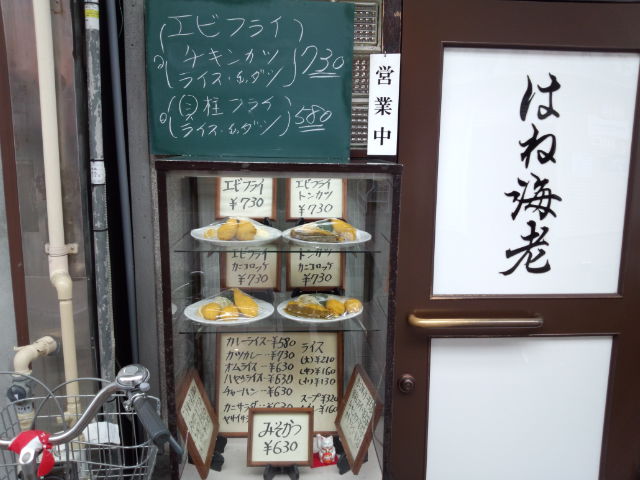 エビフライ
チキンカツ
ライス・
730
柱フライ
ライス・
580
営業中
はね海老
エビフライ
¥730
エビフライ
トンカツ
¥730
エビフライ
カニコロッケ
¥730
トンカツ
カニコロッケ
¥730
カレーライス…¥580
カツカレー…¥730
オムライス…¥630
ハヤシライス…¥630
チャーハン…¥630
カニサラダ
ヤサイサラダ
ライス
(大)¥210
(中)¥160
(小)¥130
スープ¥320
¥160
みそかつ
¥630